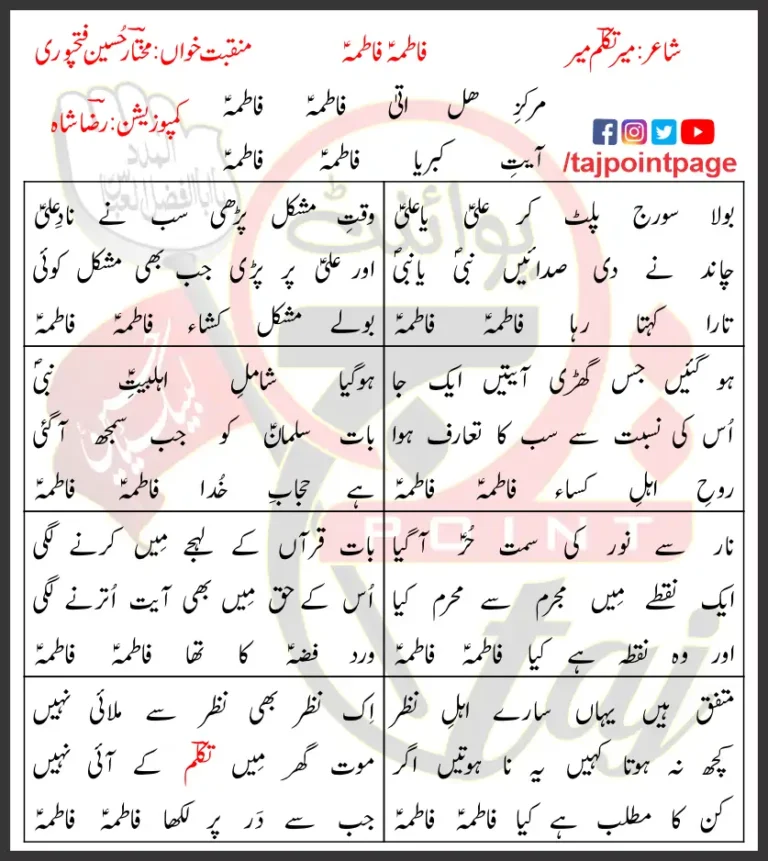 شاعر: میر تکلّم میر
فاطمہؑ فاطمہؑ
منقبت خواں: مختار حُسین فتحپوری
مرکزِ ھل اتیٰ فاطمہؑ فاطمہؑ
کمپوزیشن: رضا شاہ
آیتِ کبریا فاطمہؑ فاطمہؑ
/tajpointpage
بولا سورج پلٹ کر علیؑ یاعلیؑ
چاند نے دی صدائیں نبیؐ یانبیؐ
تارا کہتا رہا فاطمہؑ فاطمہؑ
وقتِ مشکل پڑھی سب نے نادِعلیؑ
اور علیؑ پر پڑی جب بھی مشکل کوئی
بولے مشکل کشاء فاطمہؑ فاطمہؑ
ہو گئیں جس گھڑی آیتیں ایک جا
اُس کی نسبت سے سب کا تعارف ہوا
روحِ اہلِ کساء فاطمہؑ فاطمہؑ
ہوگیا شاملِ اہلبیتِؑ نبیؐ
بات سلمانؑ کو جب سمجھ آگئی
ہے حجابِ خُدا فاطمہؑ فاطمہؑ
نار سے نور کی سمت حُرؑ آ گیا
ایک نقطے مِیں مجرم سے محرم کیا
اور وہ نقطہ ہے کیا فاطمہؑ فاطمہؑ
بات قرآں کے لہجے مِیں کرنے لگی
اُس کے حق مِیں بھی آیت اُترنے لگی
ورد فضہؑ کا تھا فاطمہؑ فاطمہؑ
متفق ہیں یہاں سارے اہلِ نظر
کچھ نہ ہوتا کہیں یہ نا ہوتیں اگر
کن کا مطلب ہے کیا فاطمہؑ فاطمہؑ
اِک نظر بھی نظر سے ملائی نہیں
موت گھر مِیں تکلّم کے آئی نہیں
جب سے دَر پر لکھا فاطمہؑ فاطمہؑ
پوائنٹ
POINT
taj